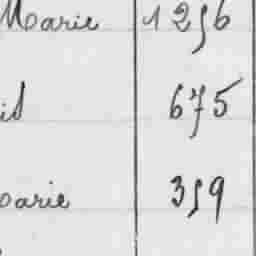 Marie 1256
id 675
parie 359